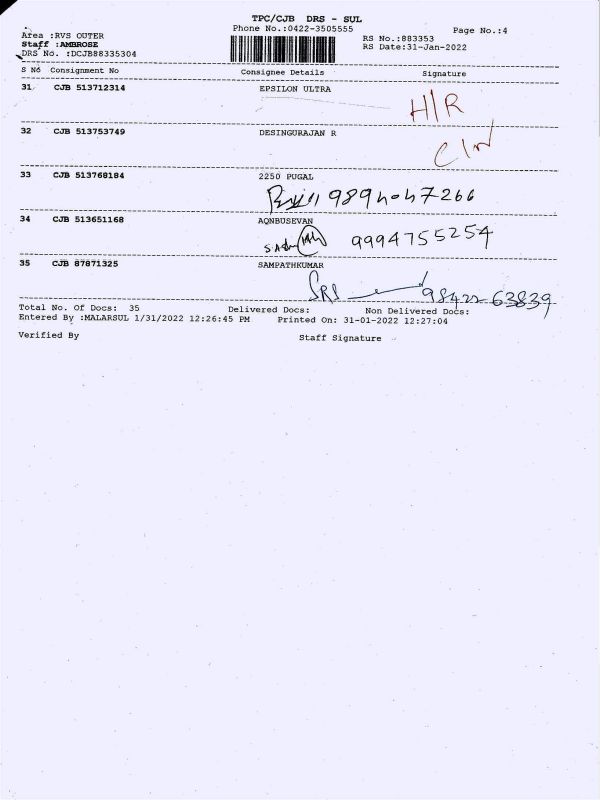 TPC/CJB DRS - SUL
Phone No.:0422-3505555
Page No.:4
Area :RVS OUTER
RS No.:883353
Staff :AMBROSE
RS Date:31-Jan-2022
DRS No. :DCJB88335304
S No Consignment No Consignee Details Signature
31 CJB 513712314 EPSILON ULTRA
H/R
32 CJB 513753749 DESINGURAJAN R
33 CJB 513768184 2250 PUGAL
9894047266
34 CJB 513651168 AQNBUSEVAN
9994755254
35 CJB 87871325 SAMPATHKUMAR
SRS 98422-63839
Total No. Of Docs: 35 Delivered Docs: Non Delivered Docs:
Entered By :MALARSUL 1/31/2022 12:26:45 PM Printed On: 31-01-2022 12:27:04
Verified By Staff Signature